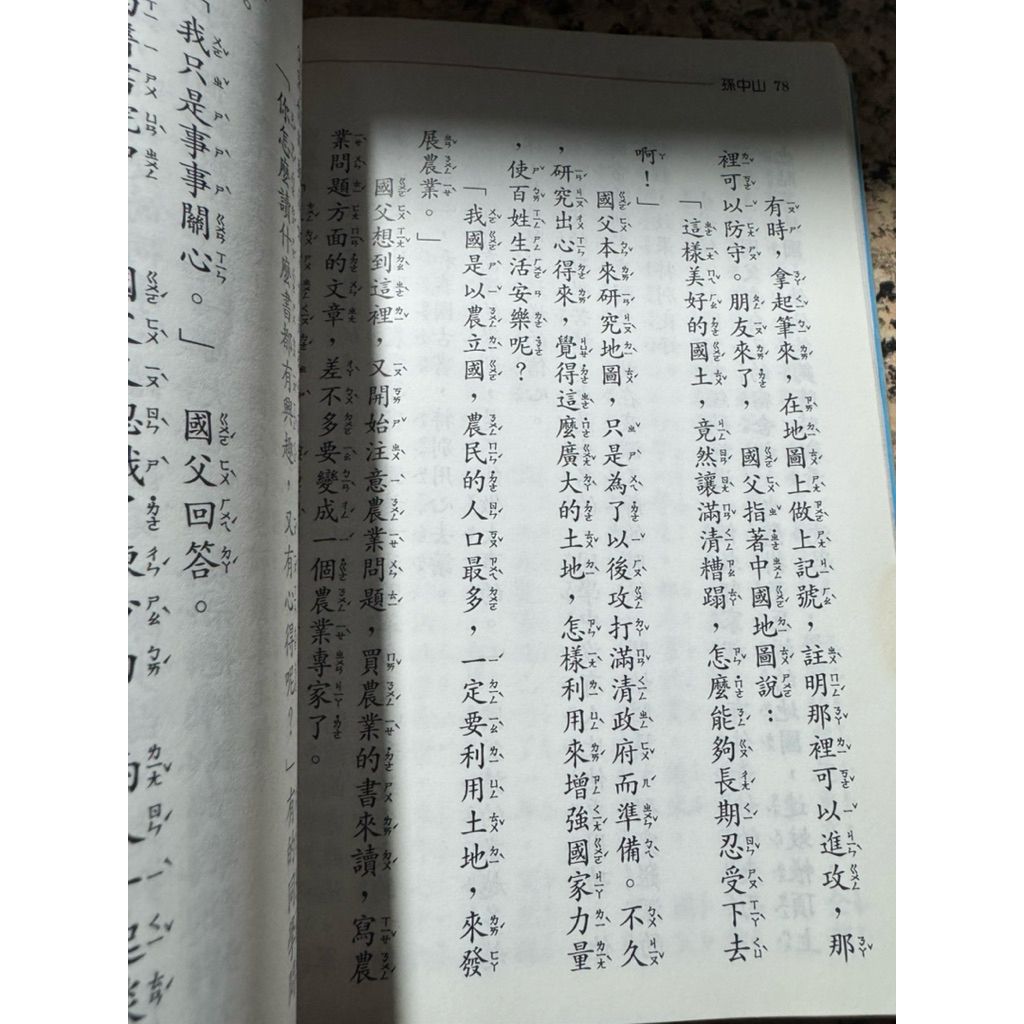 孫中山 78
有時，拿起筆來，在地圖上做上記號，註明那裡可以進攻，那
裡可以防守。朋友來了，國父指著中國地圖說：
「這樣美好的國土，竟然讓滿清糟蹋，怎麼能夠長期忍受下去
啊！」
國父本來研究地圖，只是為了以後攻打滿清政府而準備。不久
，研究出心得來，覺得這麼廣大的土地，怎樣利用來增強國家力量
，使百姓生活安樂呢？
「我國是以農立國，農民的人口最多，一定要利用土地，來發
展農業。」
國父想到這裡，又開始注意農業問題，買農業的書來讀，寫農
業問題方面的文章，差不多要變成一個農業專家了。
「你怎麼讀什麼書都有興趣，又有心得呢？」有的同學問
「我只是事事關心。」國父回答。